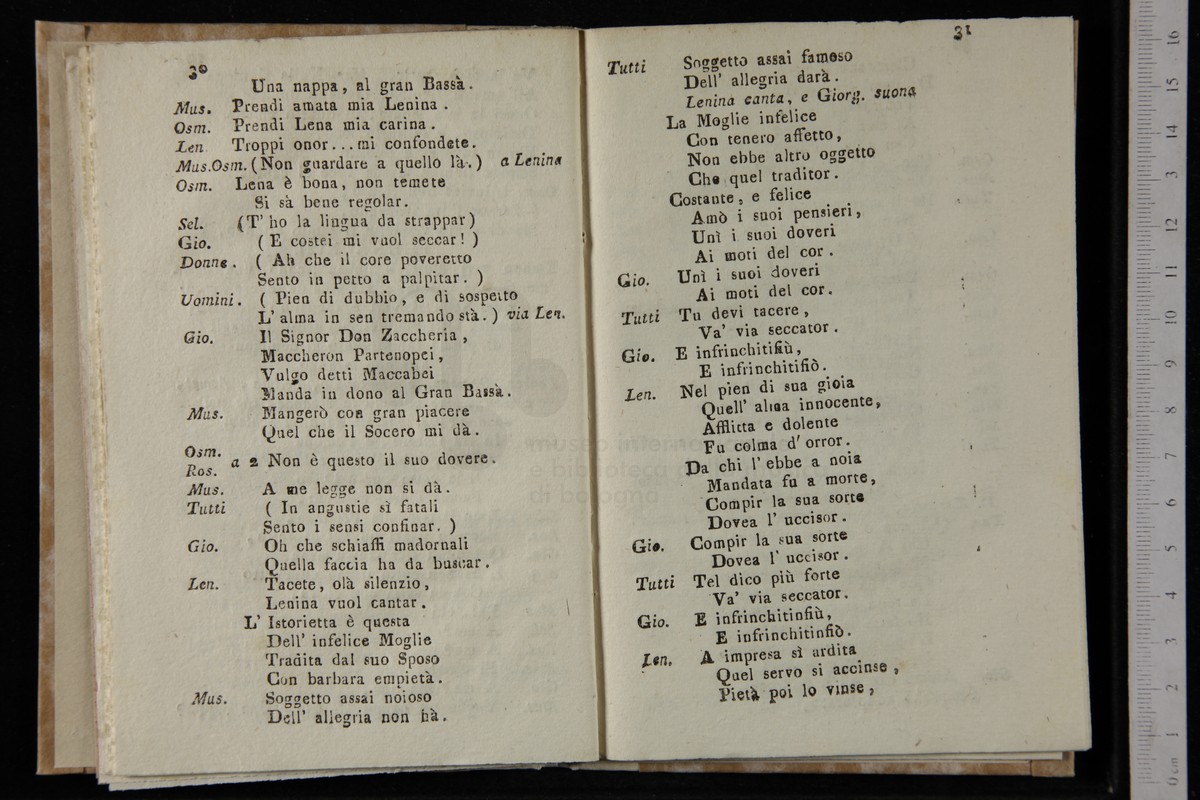 30
Una nappa, al gran Bassà.
Mus. Prendi amata mia Lenina.
Osm. Prendi Lena mia carina.
Len. Troppi onor... mi confondete.
Mus.Osm. (Non guardare a quello là.) a Lenina
Osm. Lena è bona, non temete
Si sà bene regolar.
Sel. (T' ho la lingua da strappar)
Gio. ( E costei mi vuol seccar! )
Donne. ( Ah che il core poveretto
Sento in petto a palpitar. )
Uomini. ( Pien di dubbio, e di sospetto
L' alma in sen tremando stà. ) via Len.
Gio. Il Signor Don Zaccheria,
Maccheron Partenopei,
Vulgo detti Maccabei
Manda in dono al Gran Bassà.
Mus. Mangerò con gran piacere
Quel che il Socero mi dà.
Osm.
Ros. a 2 Non è questo il suo dovere.
Mus. A me legge non si dà.
Tutti ( In angustie sì fatali
Sento i sensi confinar. )
Gio. Oh che schiaffi madornali
Quella faccia ha da buscar.
Len. Tacete, olà silenzio,
Lenina vuol cantar.
L' Istorietta è questa
Dell' infelice Moglie
Tradita dal suo Sposo
Con barbara empietà.
Mus. Soggetto assai noioso
Dell' allegria non hà.
31
Tutti Soggetto assai famoso
Dell' allegria darà.
Lenina canta, e Giorg. suona
La Moglie infelice
Con tenero affetto,
Non ebbe altro oggetto
Che quel traditor.
Costante, e felice
Amò i suoi pensieri,
Unì i suoi doveri
Ai moti del cor.
Gio. Unì i suoi doveri
Ai moti del cor.
Tutti Tu devi tacere,
Va' via seccator.
Gio. E infrinchitifiù,
E infrinchitifiò.
Len. Nel pien di sua gioia
Quell' alma innocente,
Afflitta e dolente
Fu colma d' orror.
Da chi l' ebbe a noia
Mandata fu a morte,
Compir la sua sorte
Dovea l' uccisor.
Gio. Compir la sua sorte
Dovea l' uccisor.
Tutti Tel dico più forte
Va' via seccator.
Gio. E infrinchitinfiù,
E infrinchitinfiò.
Len. A impresa sì ardita
Quel servo si accinse,
Pietà poi lo vinse,